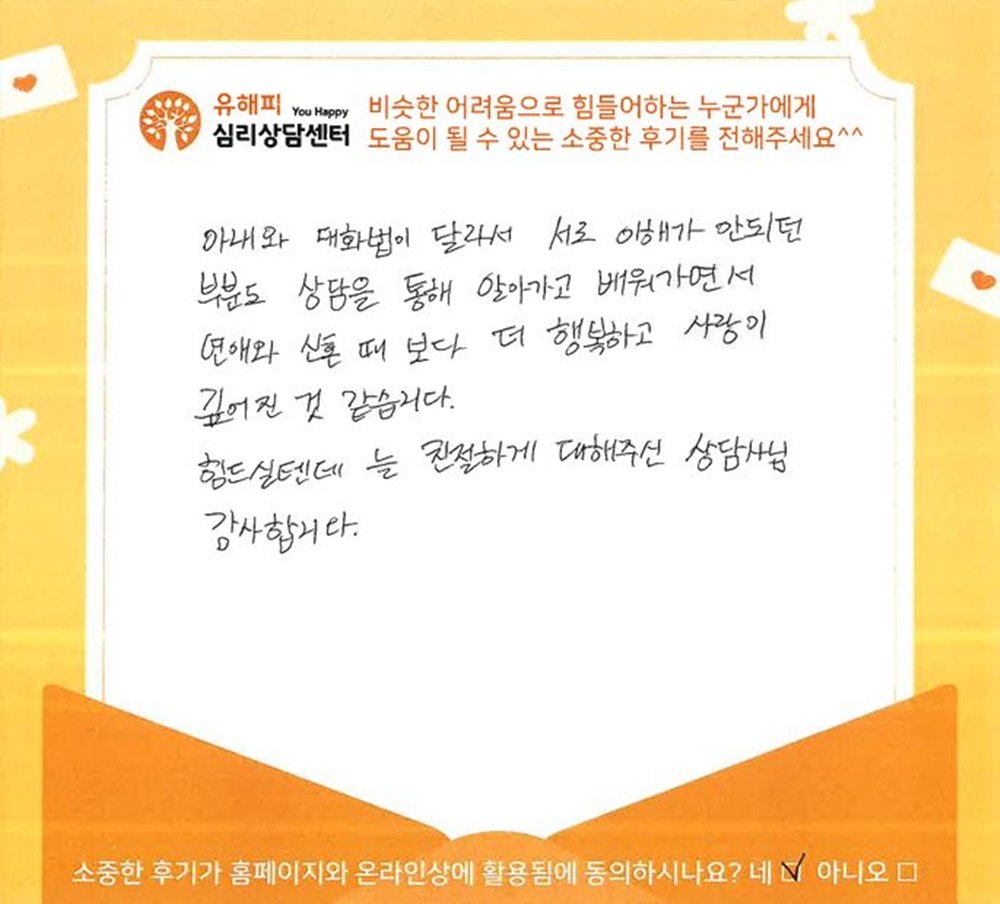 유해피 You Happy
심리상담센터
비슷한 어려움으로 힘들어하는 누군가에게
도움이 될 수 있는 소중한 후기를 전해주세요^^
아내와 대화법이 달라서 서로 이해가 안되던
부분도 상담을 통해 알아가고 배워가면서
연애와 신혼 때 보다 더 행복하고 사랑이
깊어진 것 같습니다.
힘드실텐데 늘 친절하게 대해주신 상담사님
감사합니다.
소중한 후기가 홈페이지와 온라인상에 활용됨에 동의하시나요? 네 ☑ 아니오 □